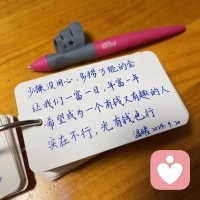 少操没用心，多捞万能的金
让我们日富一日，年富一年
希望成为一个有钱又有趣的人
实在不行，光有钱也行